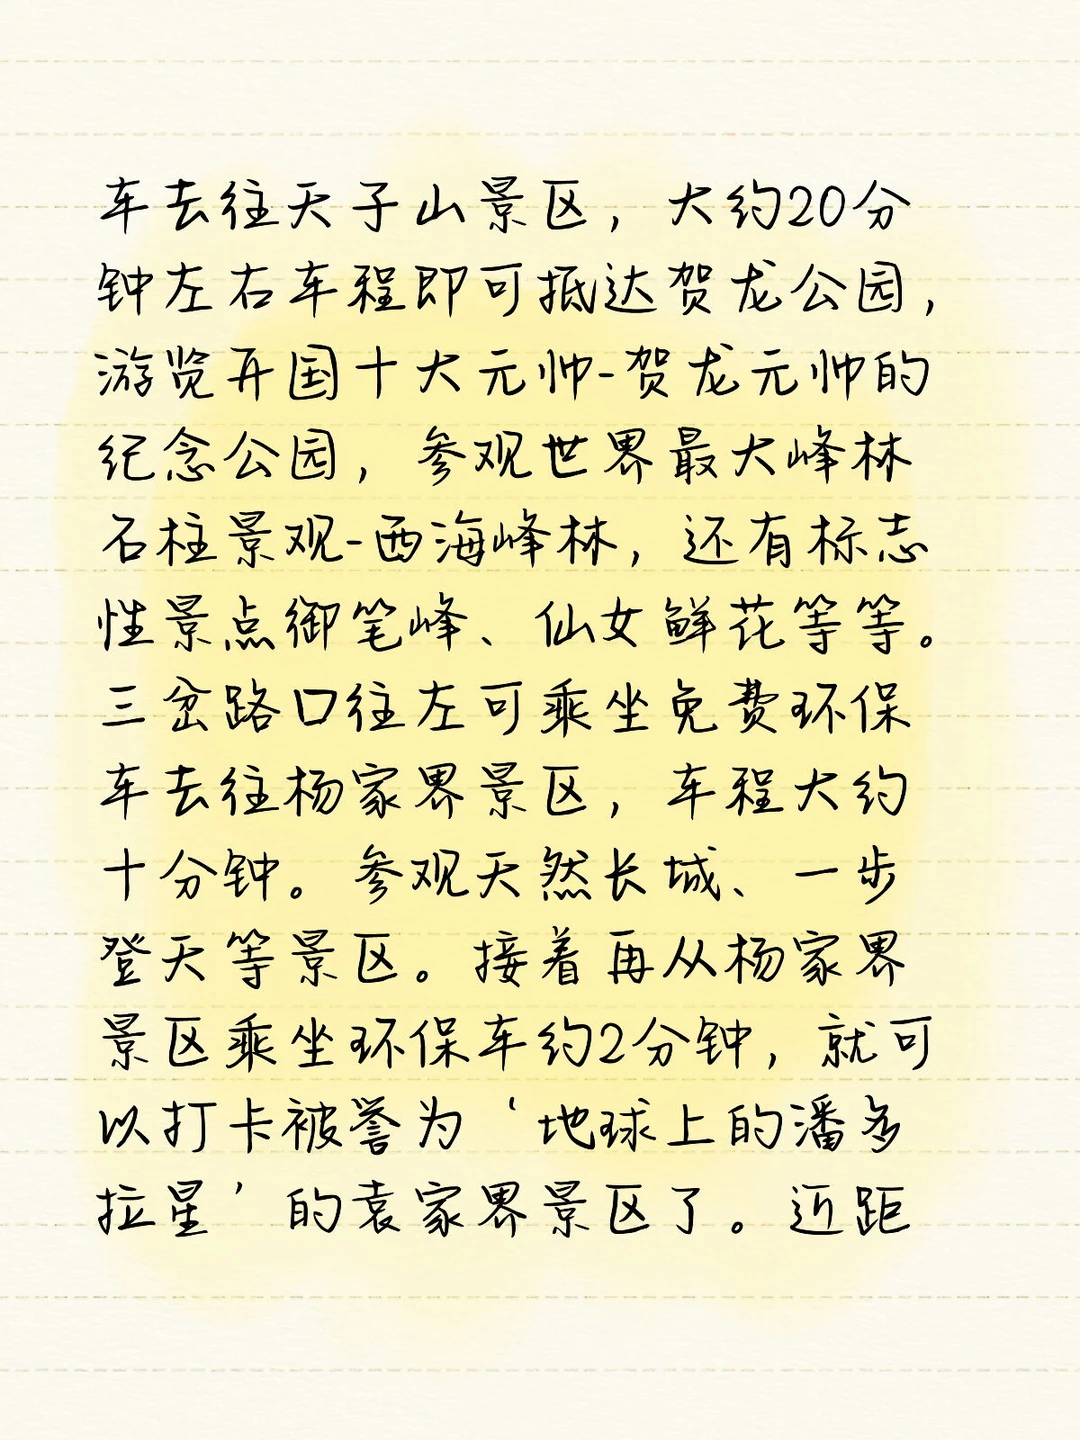 车去往天子山景区，大约20分
钟左右车程即可抵达贺龙公园，
游览开国十大元帅-贺龙元帅的
纪念公园，参观世界最大峰林
石柱景观-西海峰林，还有标志
性景点御笔峰、仙女鲜花等等。
三岔路口往左可乘坐免费环保
车去往杨家界景区，车程大约
十分钟。参观天然长城、一步
登天等景区。接着再从杨家界
景区乘坐环保车约2分钟，就可
以打卡被誉为‘地球上的潘多
拉星’的袁家界景区了。近距